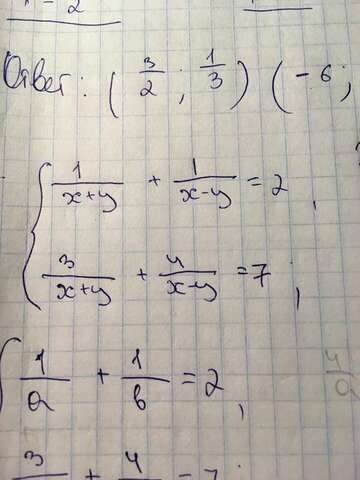 x - 2
Ответ: ( 3/2 ; 1/3 ) ( - 6 ;
{ 1/(x+y) + 1/(x-y) = 2 ,
3/(x+y) + 4/(x-y) = 7 ;
{ 1/a + 1/b = 2 , 4/a
3 + 4 = 7 ;